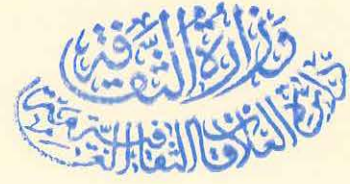 وزارة الثقافة
دائرة العلاقات الثقافية العامة